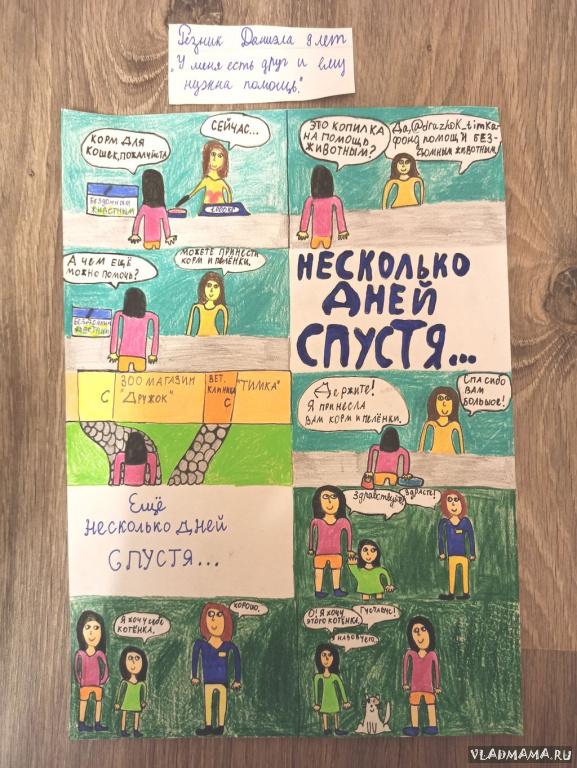 Резник Даниэла 8 лет
"У меня есть друг и ему
нужна помощь."
КОРМ ДЛЯ
КОШЕК,ПОЖАЛУЙСТА
СЕЙЧАС...
БЕЗДОМНЫМ
ЖИВОТНЫМ
ЭТО КОПИЛКА
НА ПОМОЩЬ
ЖИВОТНЫМ?
Да,@druzhok_timka-
фонд ПОМОЩИ БЕЗ-
ДОМНЫМ ЖИВОТНЫМ.
А ЧЕМ ЕЩЁ
МОЖНО ПОМОЧЬ?
МОЖЕТЕ ПРИНЕСТИ
КОРМ И ПЕЛЁНКИ.
БЕЗДОМНЫМ
ЖИВОТНЫМ
НЕСКОЛЬКО
ДНЕЙ
СПУСТЯ...
С
ЗОО МАГАЗИН
"ДРУЖОК"
ВЕТ.
КЛИНИКА
С
"ТИМКА"
Держите!
Я ПРИНЕСЛА
ВАМ КОРМ И ПЕЛЁНКИ.
СПАСИБО
ВАМ
БОЛЬШОЕ!
Ещё
несколько дней
СПУСТЯ...
Здравствуйте
ЗДРАСТЕ!
Я ХОЧУ СЕБЕ
КОТЁНКА.
ХОРОШО.
О! Я ХОЧУ
ЭТОГО КОТЁНКА.
Я НАЗОВУ ЕГО
ГУСТАВУС!
VLADMAMA.RU